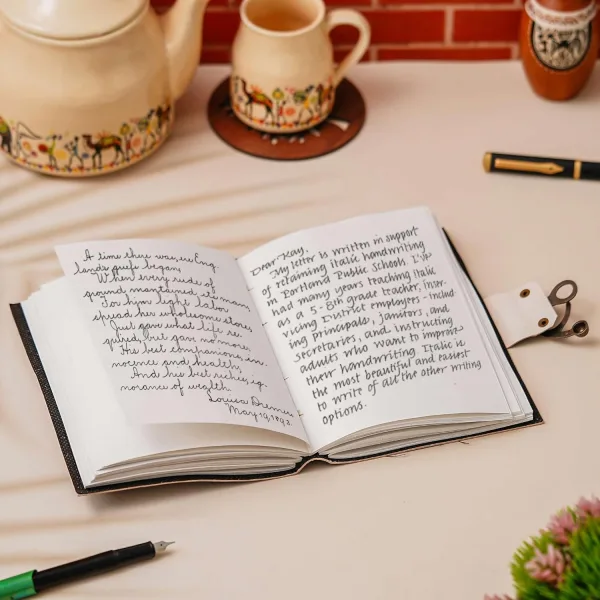 A time there was, ere Eng-
lands griefs began,
When every rood of
ground maintained its man
For him light labor
spread her wholesome store,
Just gave what life re-
quired, but gave no more.
His best companions, in-
nocence and health;
And his best riches, ig-
norance of wealth.
Louisa
May 19, 1892.
Dear Kay,
My letter is written in support
of retaining italic handwriting
in Portland Public Schools. I've
had many years teaching italic
as a 5-8th grade teacher, inser-
vicing District employees - includ-
ing principals, janitors, and
secretaries, and instructing
adults who want to improve
their handwriting. Italic is
the most beautiful and easiest
to write of all the other writing
options.